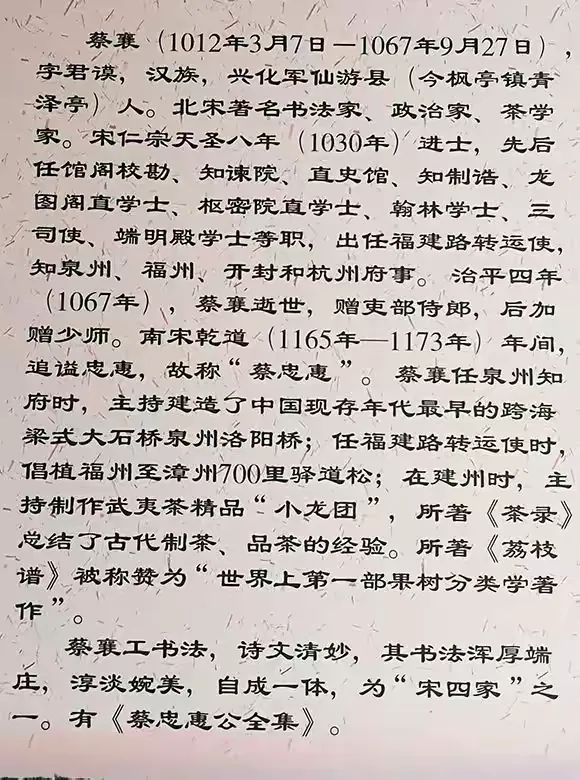 蔡襄（1012年3月7日－1067年9月27日），
字君谟，汉族，兴化军仙游县（今枫亭镇青
泽亭）人。北宋著名书法家、政治家、茶学
家。宋仁宗天圣八年（1030年）进士，先后
任馆阁校勘、知谏院、直史馆、知制诰、龙
图阁直学士、枢密院直学士、翰林学士、三
司使、端明殿学士等职，出任福建路转运使，
知泉州、福州、开封和杭州府事。治平四年
（1067年），蔡襄逝世，赠吏部侍郎，后加
赠少师。南宋乾道（1165年—1173年）年间，
追谥忠惠，故称“蔡忠惠”。蔡襄任泉州知
府时，主持建造了中国现存年代最早的跨海
梁式大石桥泉州洛阳桥；任福建路转运使时，
倡植福州至漳州700里驿道松；在建州时，主
持制作武夷茶精品“小龙团”，所著《茶录》
总结了古代制茶、品茶的经验。所著《荔枝
谱》被称赞为“世界上第一部果树分类学著
作”。
蔡襄工书法，诗文清妙，其书法浑厚端
庄，淳淡婉美，自成一体，为“宋四家”之
一。有《蔡忠惠公全集》。